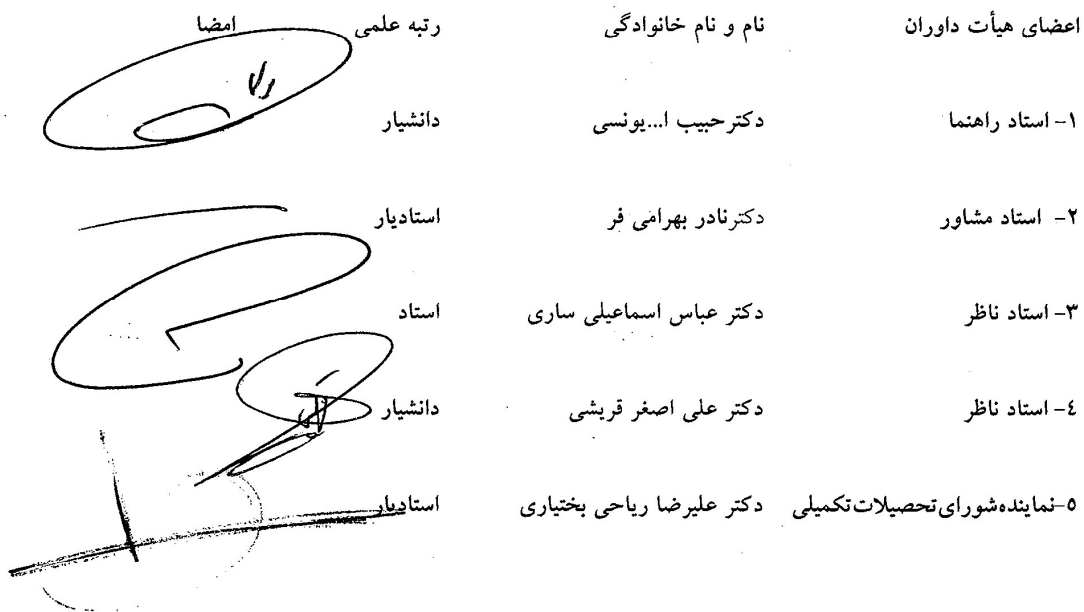 اعضای هیأت داوران نام و نام خانوادگی رتبه علمی امضا
۱- استاد راهنما دکتر حبیب ا...یونسی دانشیار
۲- استاد مشاور دکترنادر بهرامی فر استادیار
۳- استاد ناظر دکتر عباس اسماعیلی ساری استاد
٤- استاد ناظر دکتر علی اصغر قریشی دانشیار
٥-نماینده‌شورای‌تحصیلات‌تکمیلی دکتر علیرضا ریاحی بختیاری استادیار